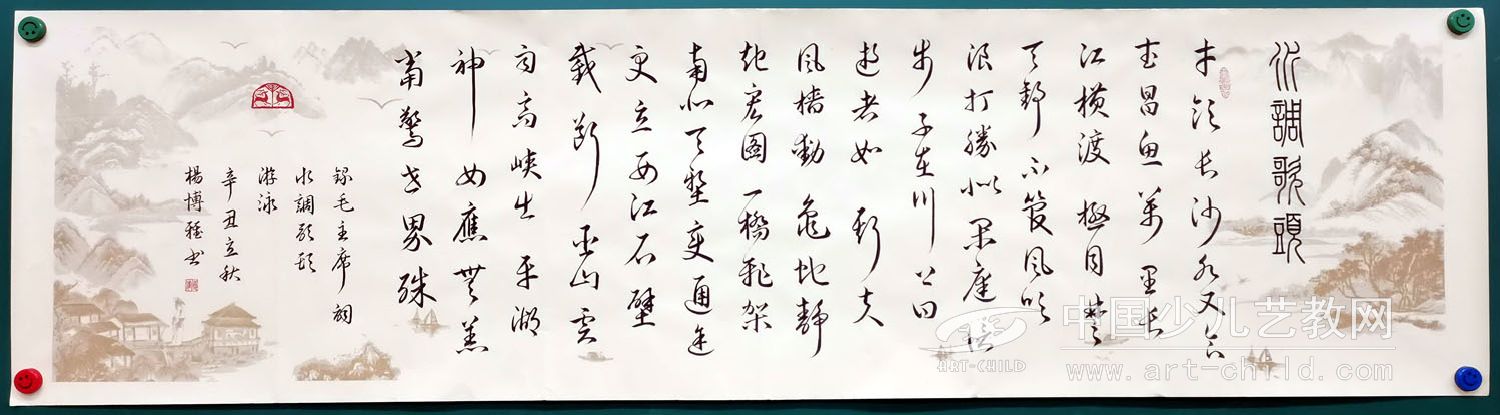 水調歌頭
才飲长沙水又食
武昌鱼万里长
江横渡極目楚
天舒不管風吹
浪打勝似闲庭信
步子在川上曰
逝者如斯夫
風檣動龜蛇静
起宏图一橋飛架
南北天堑变通途
更立西江石壁
截断巫山云
雨高峡出平湖
神女應無恙
當驚世界殊
録毛主席詞
水調歌頭
游泳
辛丑立秋
楊博雅书
中国少儿艺教网
www.art-child.com
ART-CHILD